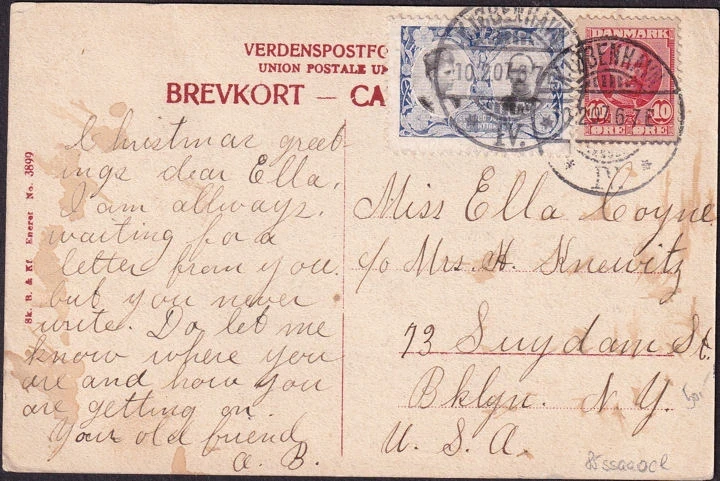 VERDENSPOSTFO
UNION POSTALE UN
BREVKORT — CA
Christmas greet-
ings dear Ella.
I am allways.
waiting for a
letter from you.
but you never
write. Do let me
know where you
are and how you
are getting on.
Your old friend
A. B.
Sk. B. & Kf. Eneret No. 3899
KJØBENHAVN
10.2.07.6-7
IV.
DANMARK
10 10
ØRE ØRE
KJØBENHAVN
2.07.6-7
IV.
Miss Ella Coyne
c/o Mrs. H. Knewitz
73 Suydam St.
Bklyn. N. Y.
U. S. A.